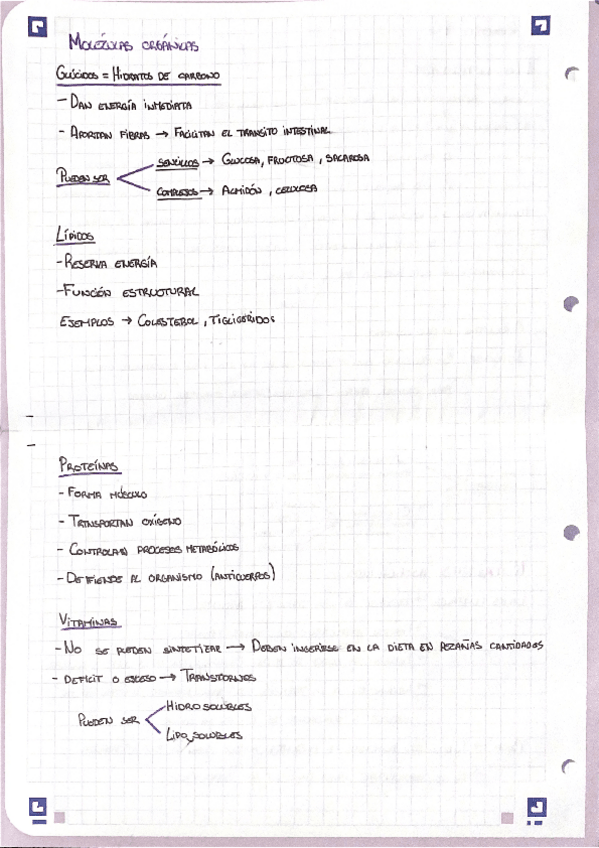 MOLÉCULAS ORGÁNICAS
GLÚCIDOS = HIDRATOS DE CARBONO
- DAN ENERGÍA INMEDIATA
- APORTAN FIBRAS → FACILITAN EL TRANSITO INTESTINAL
SENCILLOS → GLUCOSA, FRUCTOSA, SACAROSA
PUEDEN SER
COMPLEJOS → ALMIDÓN, CELULOSA
LÍPIDOS
- RESERVA ENERGÍA
- FUNCIÓN ESTRUCTURAL
EJEMPLOS → COLESTEROL, TIGLICÉRIDOS
PROTEÍNAS
- FORMA MÚSCULO
- TRANSPORTAN OXÍGENO
- CONTROLAN PROCESOS METABÓLICOS
- DEFIENDE AL ORGANISMO (ANTICUERPOS)
VITAMINAS
- NO SE PUEDEN SINTETIZAR → DEBEN INGERIRSE EN LA DIETA EN PEQUEÑAS CANTIDADES
- DEFICIT O EXCESO → TRANSTORNOS
HIDROSOLUBLES
PUEDEN SER
LIPOSOLUBLES